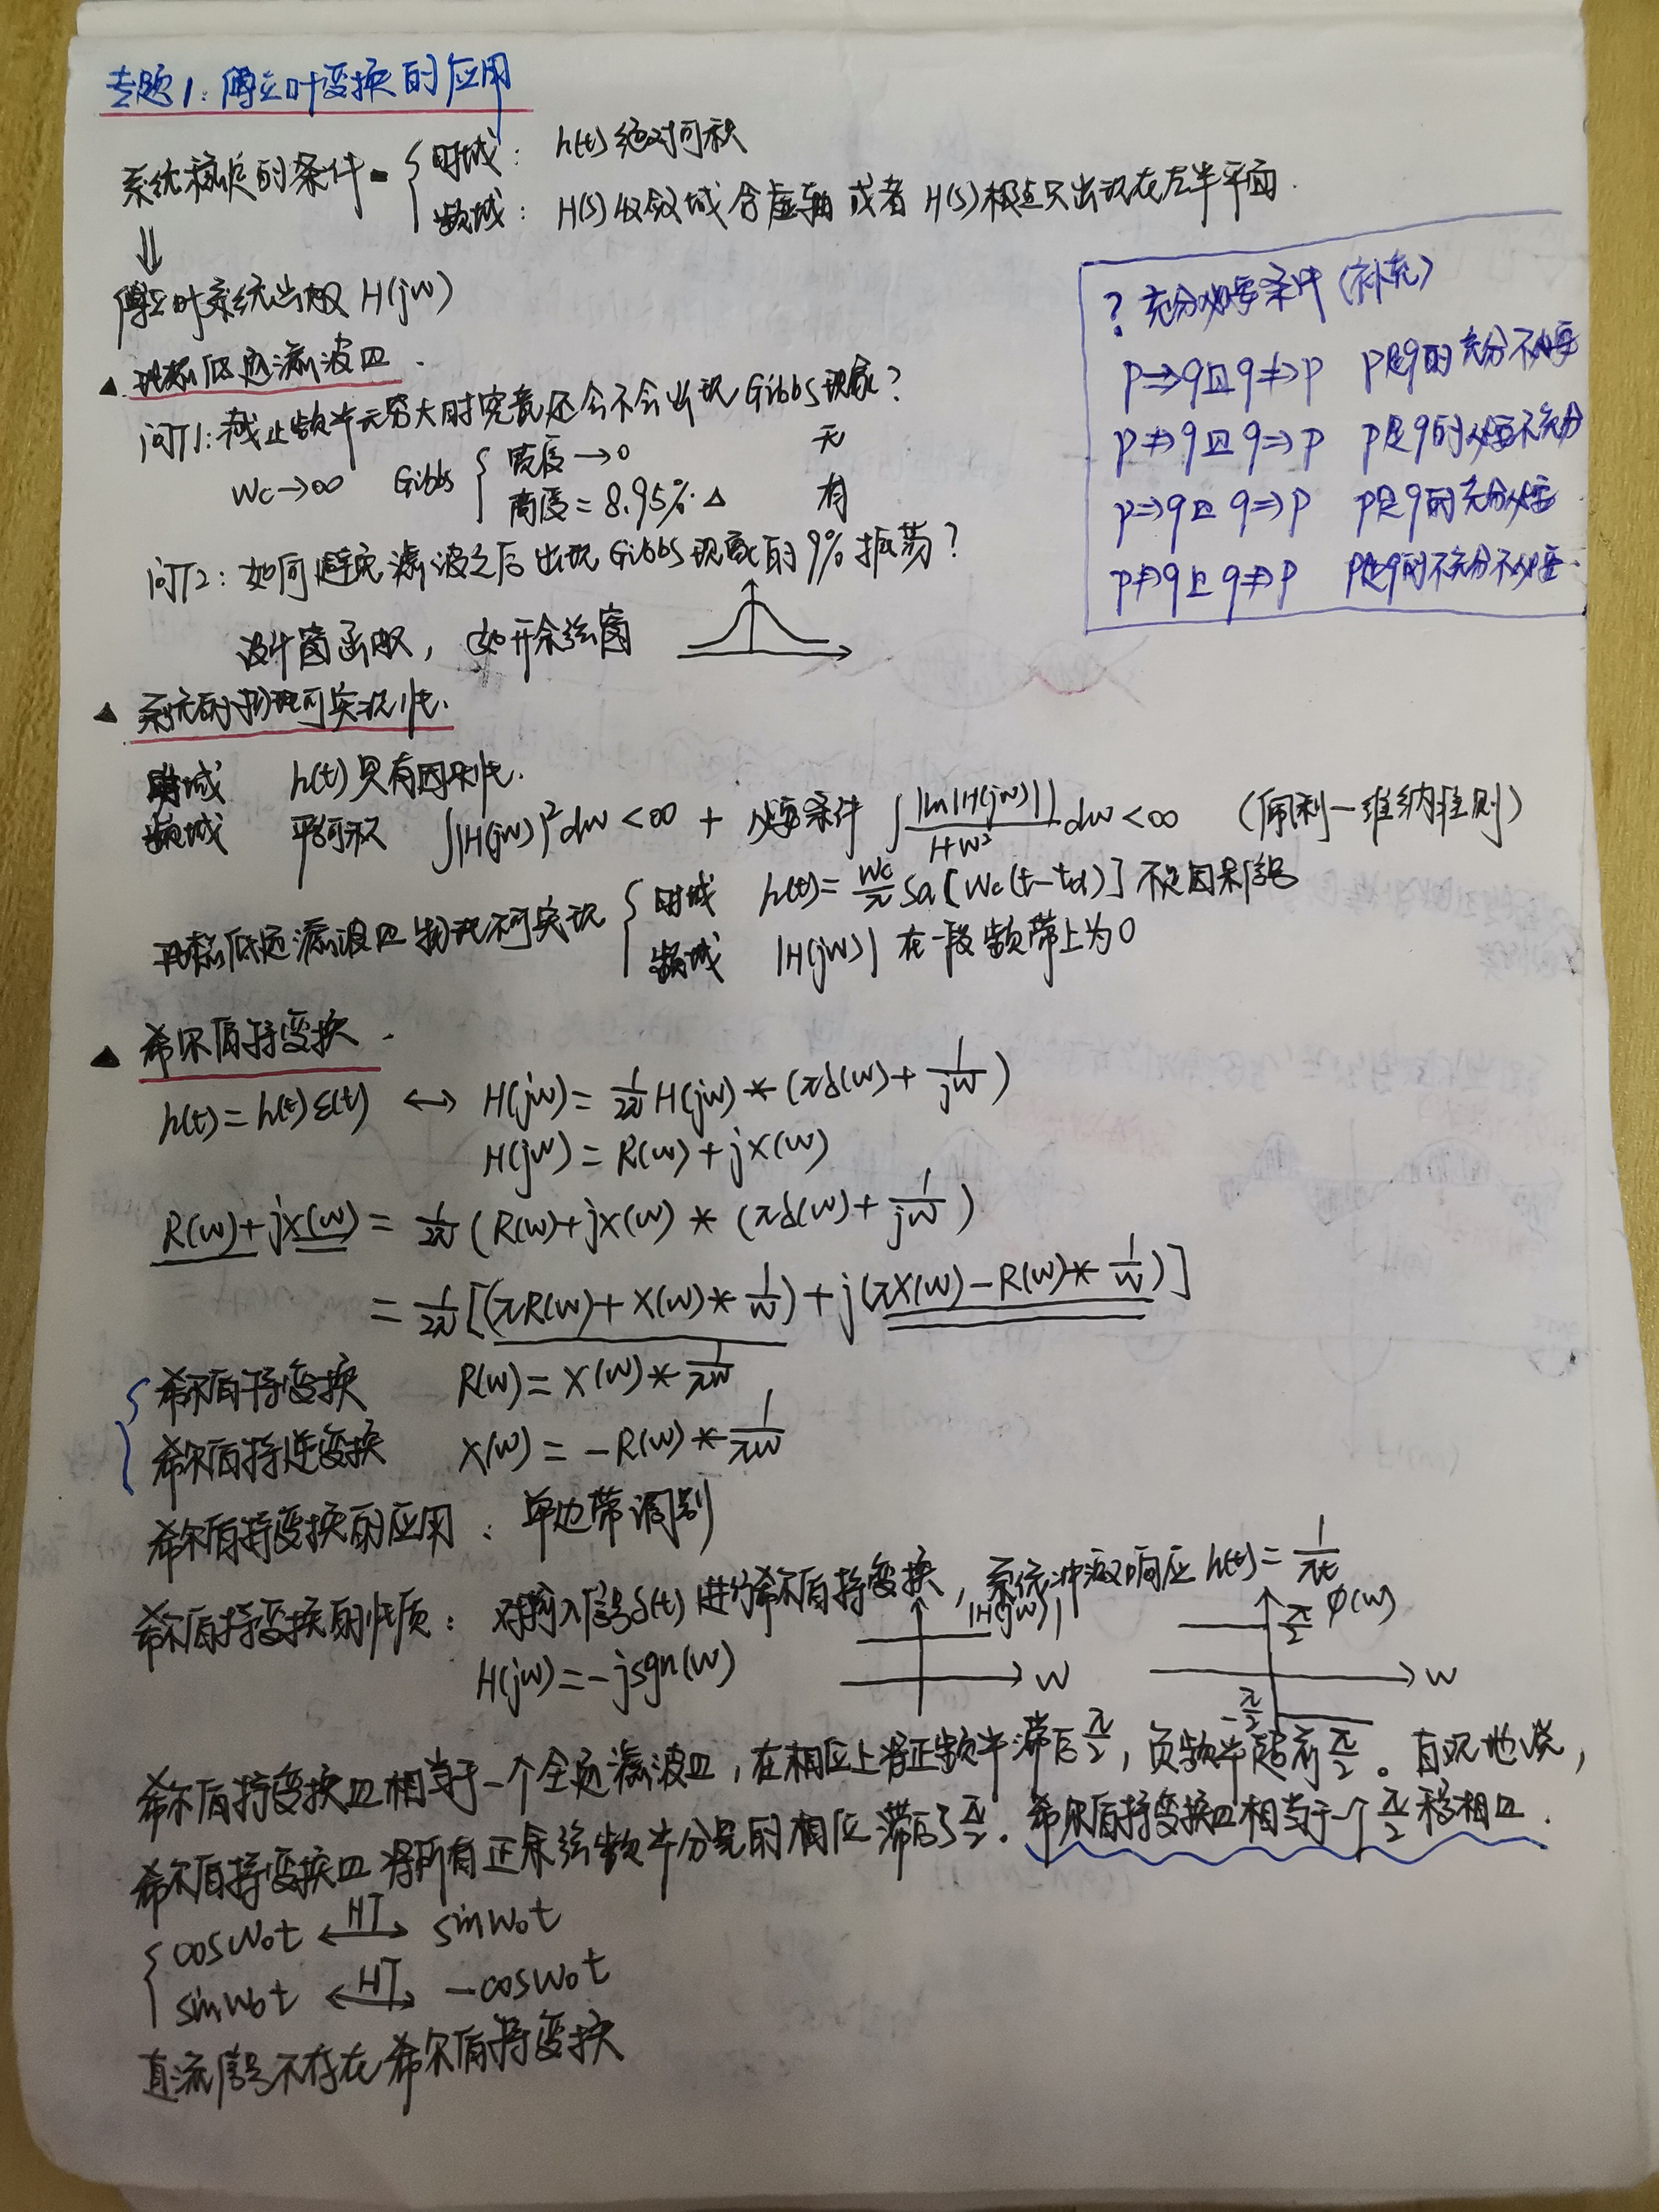 专题1：傅立叶变换的应用
系统稳定的条件 { 时域： h(t)绝对可积
频域： H(s)收敛域含虚轴 或者 H(s)极点只出现在左半平面.
⇓
傅立叶系统函数 H(jw)
▲ 理想低通滤波器.
问题1：截止频率无穷大时究竟还会不会出现Gibbs现象？
Wc→∞ Gibbs { 宽度→0 无
高度=8.95%·△ 有
问题2：如何避免滤波之后出现Gibbs现象的9%振荡？
设计窗函数，如升余弦窗
? 充分必要条件（补充）
p⇒q且q⇏p p是q的充分不必要
p⇏q且q⇒p p是q的必要不充分
p⇒q且q⇒p p是q的充分必要
p⇏q且q⇏p p是q的不充分不必要.
▲ 系统的物理可实现性.
时域 h(t)具有因果性.
频域 平方可积 ∫|H(jw)|²dw<∞ + 必要条件 ∫|ln|H(jw)||/(1+w²) dw<∞ （佩利—维纳准则）
理想低通滤波器物理不可实现 { 时域 h(t)=Wc/π Sa[Wc(t-td)] 不是因果信号
频域 |H(jw)| 在一段频带上为0
▲ 希尔伯特变换.
h(t)=h(t)ε(t) ↔ H(jw)=1/2π H(jw)*(πδ(w)+1/jw)
H(jw)=R(w)+jX(w)
R(w)+jX(w)=1/2π (R(w)+jX(w)*(πδ(w)+1/jw)
=1/2π[(πR(w)+X(w)*1/w)+j(πX(w)-R(w)*1/w)]
{ 希尔伯特变换 R(w)=X(w)*1/πw
希尔伯特逆变换 X(w)=-R(w)*1/πw
希尔伯特变换的应用：单边带调制
希尔伯特变换的性质：对输入信号δ(t)进行希尔伯特变换，系统冲激响应h(t)=1/πt
H(jw)=-jsgn(w) |H(jw)| w π/2 φ(w) w -π/2
希尔伯特变换器相当于一个全通滤波器，在相位上将正频率滞后π/2，负频率超前π/2。直观地说，
希尔伯特变换器将所有正余弦频率分量的相位滞后了π/2. 希尔伯特变换器相当于一个π/2移相器.
{ cosw₀t ←HT→ sinw₀t
sinw₀t ←HT→ -cosw₀t
直流信号不存在希尔伯特变换